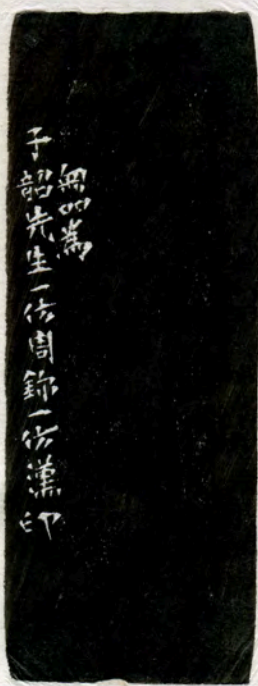 無咎為
子韶先生一仿周鉨一仿漢印